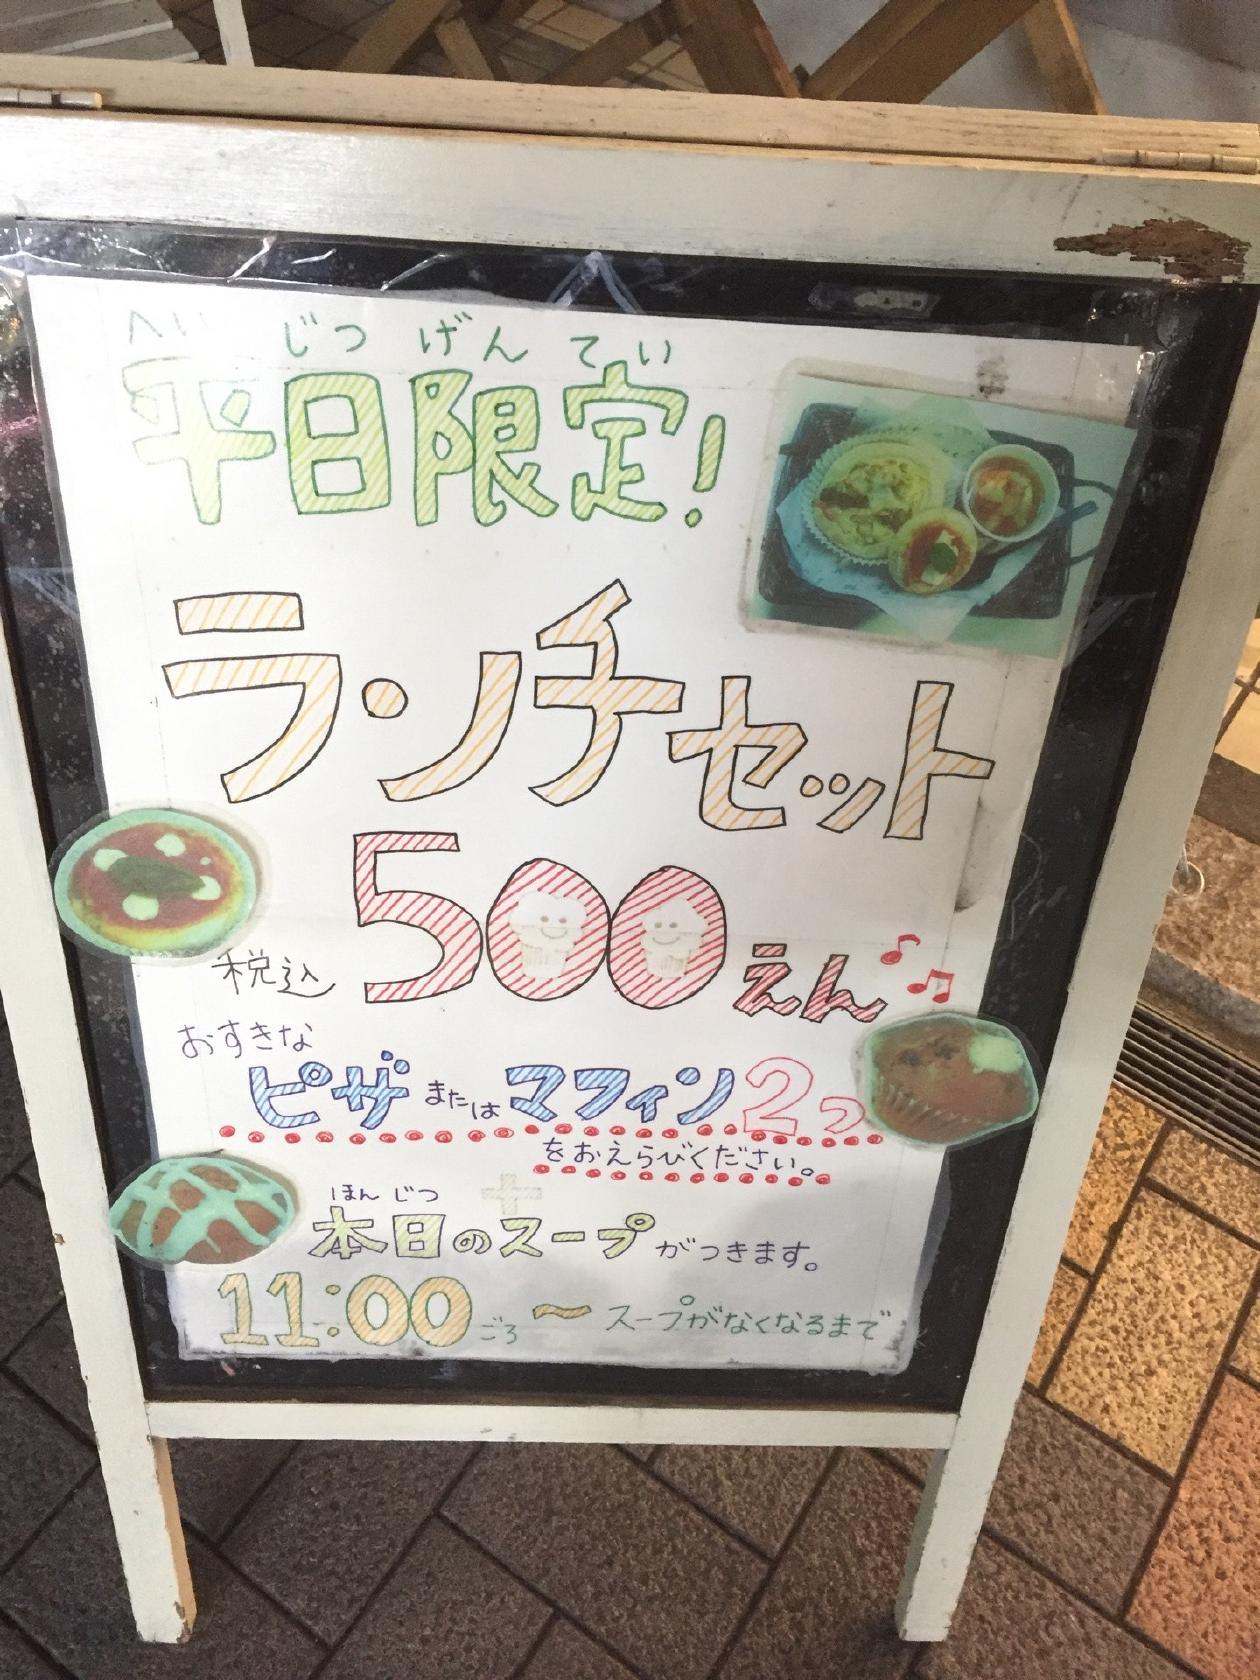 へいじつげんてい
平日限定!
ランチセット
税込 500えん
おすきな
ピザ または マフィン2つ
をおえらびください。
+
ほんじつ
本日のスープ がつきます。
11:00ごろ ~ スープがなくなるまで